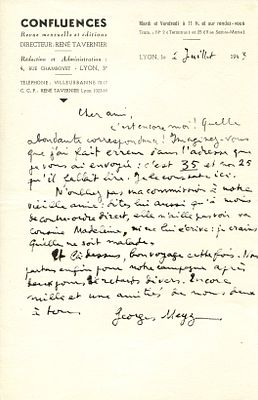 CONFLUENCES
Revue mensuelle et éditions
DIRECTEUR: RENÉ TAVERNIER
Rédaction et Administration:
LYON, 3e
TÉLÉPHONE: VILLEURBANNE
C.C.P.: RENÉ TAVERNIER Lyon
Mardi et Vendredi à 11 h. et sur rendez-vous
LYON, le 2 Juillet 1943
Cher ami,
c'est encore moi! Quelle
abondante correspondance! Imaginez-vous
que j'ai fait erreur dans l'adresse que
je vous ai envoyée: c'est 35 et non 25
qu'il fallait lire.
N'oubliez pas ma commission à notre
vieille amie: dites lui aussi qu'à moins
de contrordre direct, elle n'aille pas voir ma
cousine Madeleine, ni ne lui écrive: je crains
qu'elle ne soit malade.
Et là dessus, bon voyage cette fois. Nous
partons enfin pour notre campagne après
deux jours de retards divers. Encore
mille et une amitiés de nous deux
à tous.
Georges